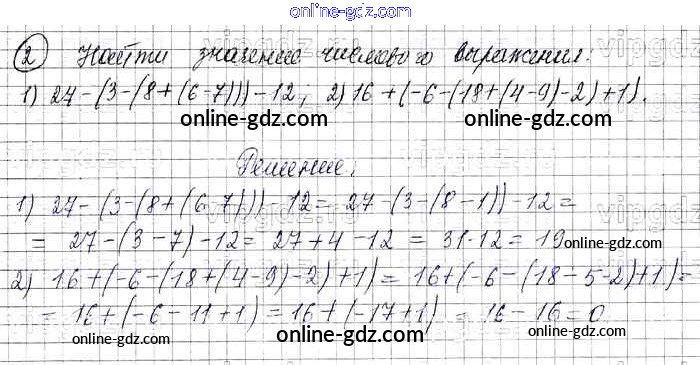 online-gdz.com
② Найти значение числового выражения.
1) 27-(3-(8+(6-7)))-12; 2) 16+(-6-(18+(4-9)-2)+1).
online-gdz.com online-gdz.com
Решение.
1) 27-(3-(8+(6-7)))-12= 27-(3-(8-1))-12=
= 27-(3-7)-12= 27+4-12= 31-12= 19 online-gdz.com
2) 16+(-6-(18+(4-9)-2)+1)= 16+(-6-(18-5-2)+1)=
online-gdz.com
= 16+(-6-11+1)=16+(-17+1) = 16-16=0
online-gdz.com online-gdz.com
online-gdz.com